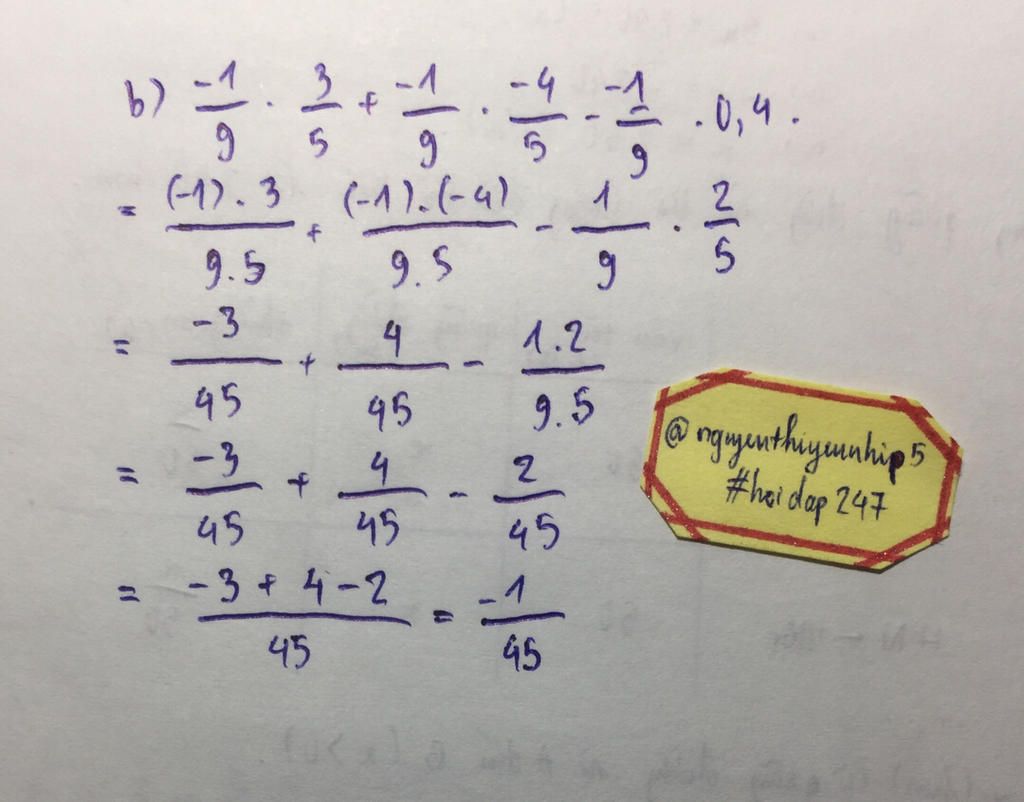 b) -1/9 . 3/5 + -1/9 . -4/5 - -1/9 . 0,4.
= (-1).3/9.5 + (-1).(-4)/9.5 - 1/9 . 2/5
= -3/45 + 4/45 - 1.2/9.5
= -3/45 + 4/45 - 2/45
= -3+4-2/45 = -1/45
@nguyenthiyennhip5
#hoidap247